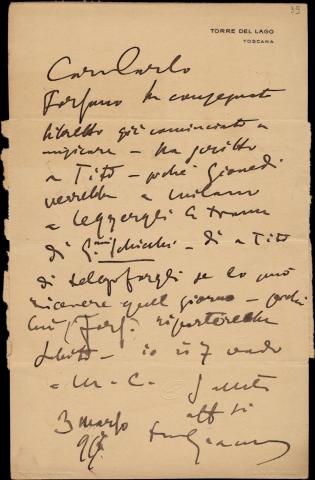 39
TORRE DEL LAGO
TOSCANA
Caro Carlo
Forzano ha consegnato
libretto già cominciato a
musicare – ha scritto
a Tito – poiché Giovedì
verrebbe a Milano
a leggergli la trama
di G.ⁿⁿⁱ Schicchi – di a Tito
di telegrafargli se lo può
ricevere quel giorno – poiché
lui, Forz. ripartirebbe
subito – io il 7 vado
a M. C. Saluti
aff tuo
3 marzo